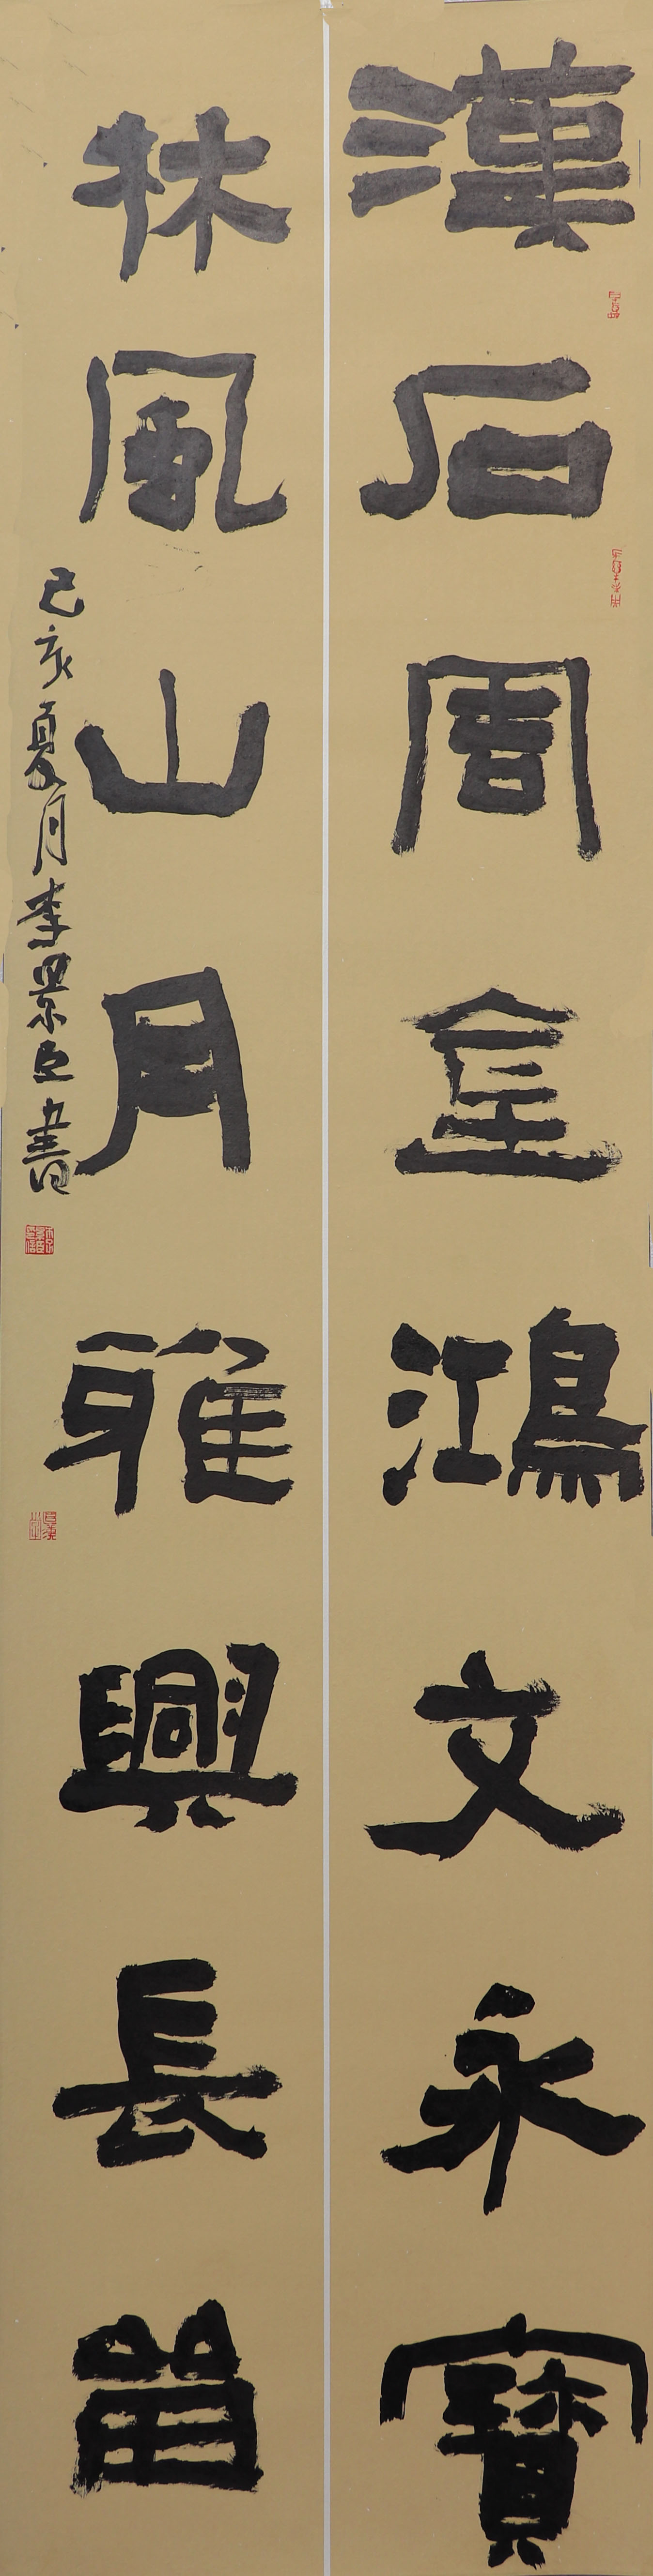 漢石周金鴻文永寶
林風山月雅興長留
己亥夏月李景臣書